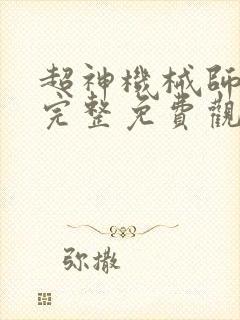 超神機械師
完整免費觀
弥撒